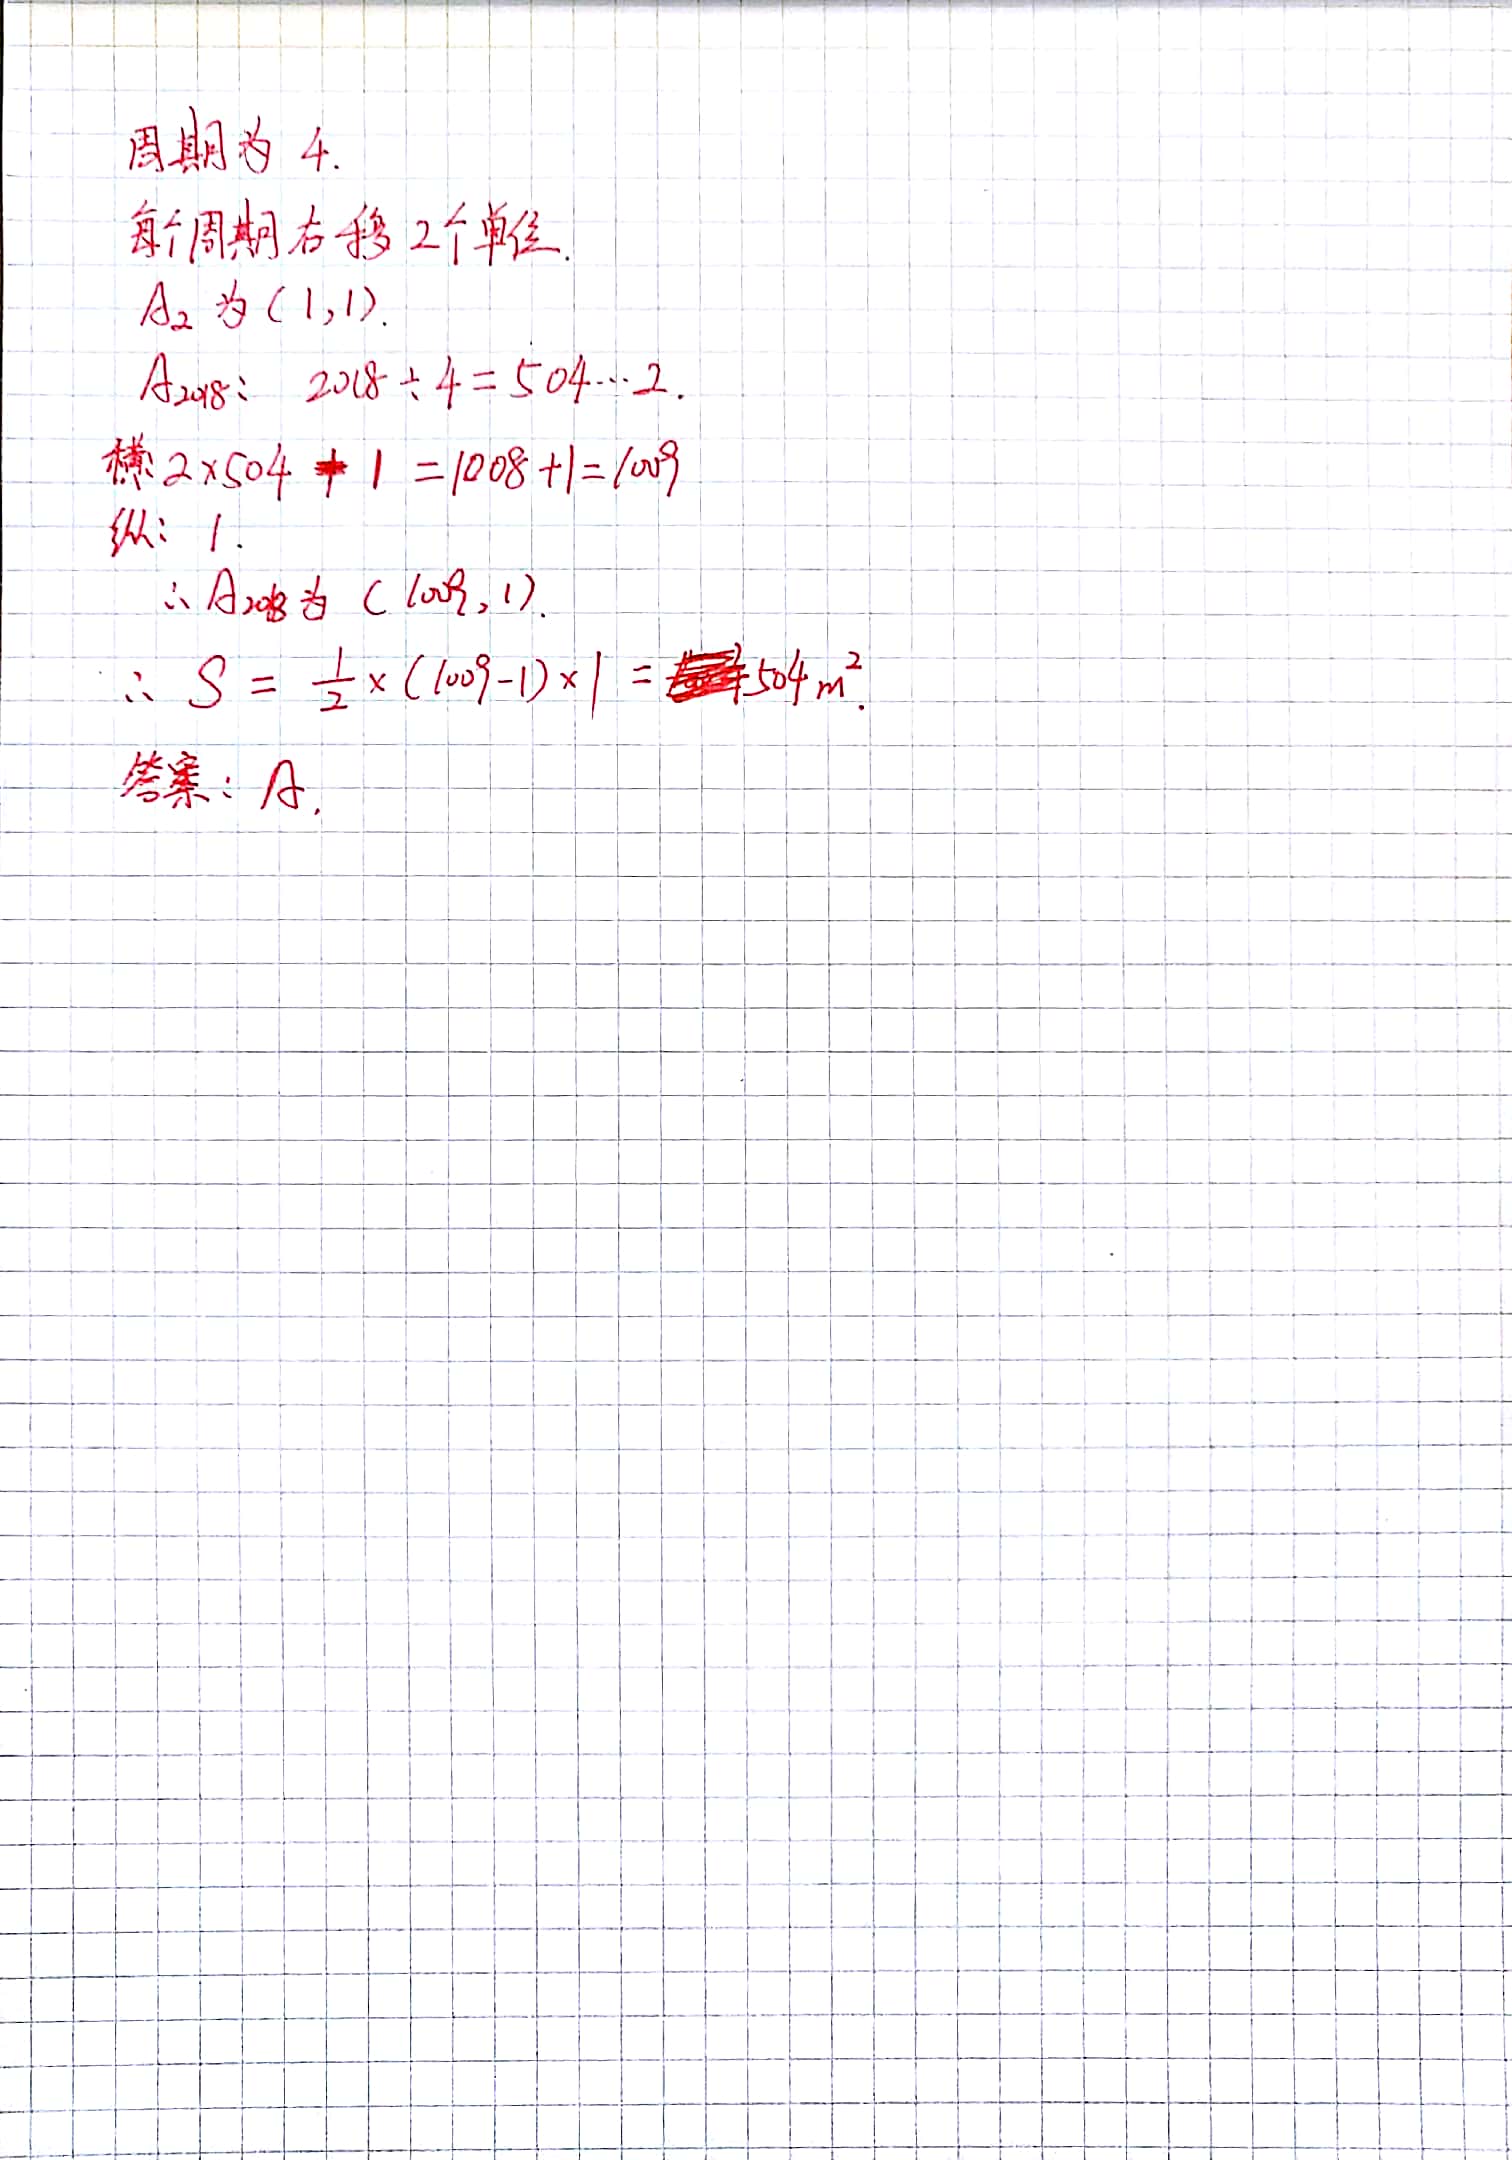 周期为 4.
每个周期右移 2个单位.
A₂ 为 (1,1).
A₂₀₁₈: 2018÷4=504…2.
横: 2×504 + 1 =1008+1=1009
纵: 1.
∴ A₂₀₁₈为 (1009,1).
∴ S = 1/2 × (1009-1)×1 = 504m².
答案: A.